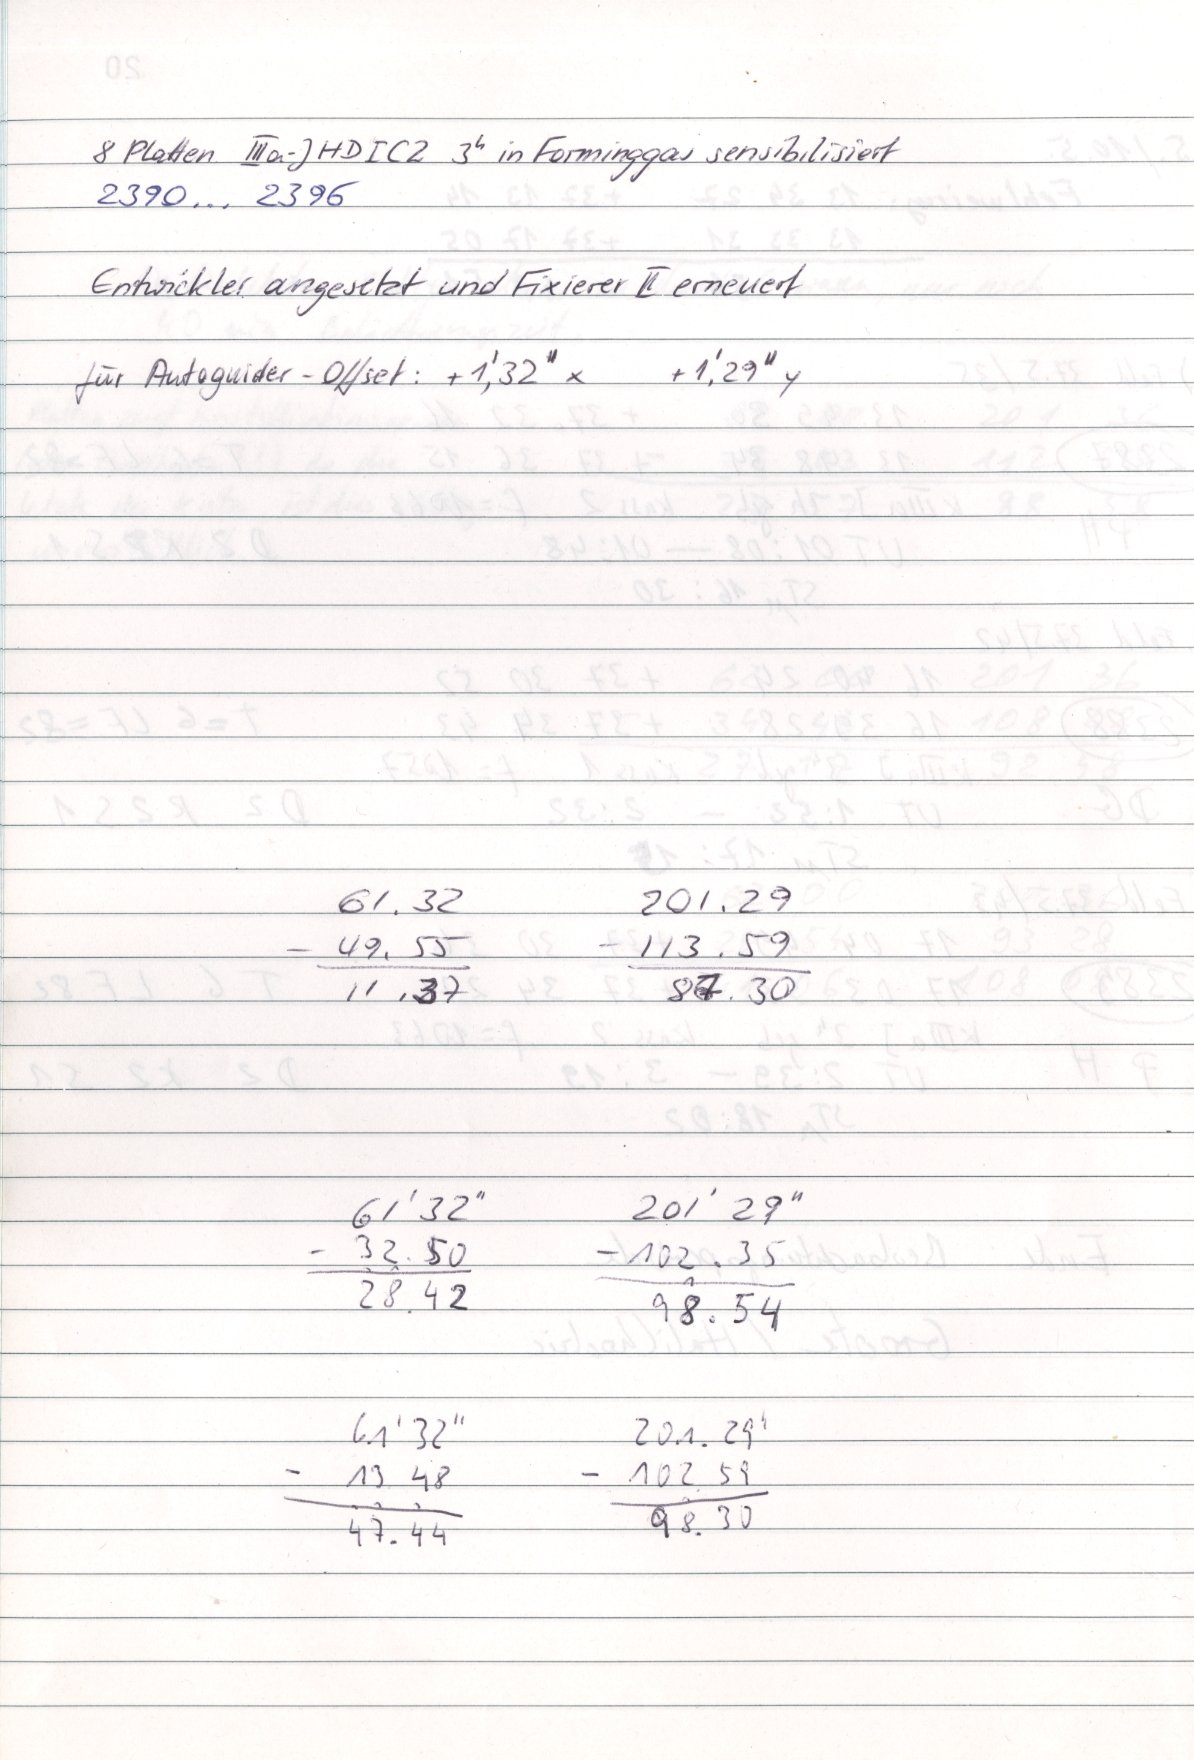 8 Platten IIIa-J HDIC2 3h in Forminggas sensibilisiert
2390... 2396
Entwickler angesetzt und Fixierer II erneuert
für Autoguider-Offset: +1,'32" x +1,'29" y
61.32 201.29
- 49.55 - 113.59
11.37 87.30
61'32" 201'29"
- 32.50 - 102.35
28.42 98.54
61'32" 201.29'
- 13 48 - 102 59
47.44 98.30